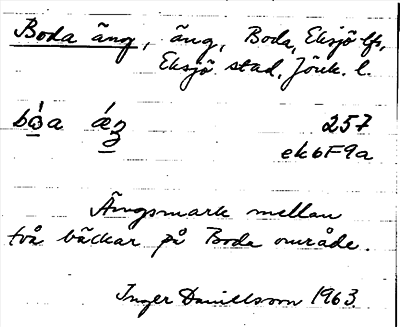 Boda äng, äng, Boda, Eksjö lfs,
Eksjö stad, Jönk. l.
257
ek6F9a
Ängsmark mellan
två bäckar på Boda område.
Inger Danielsson 1963.